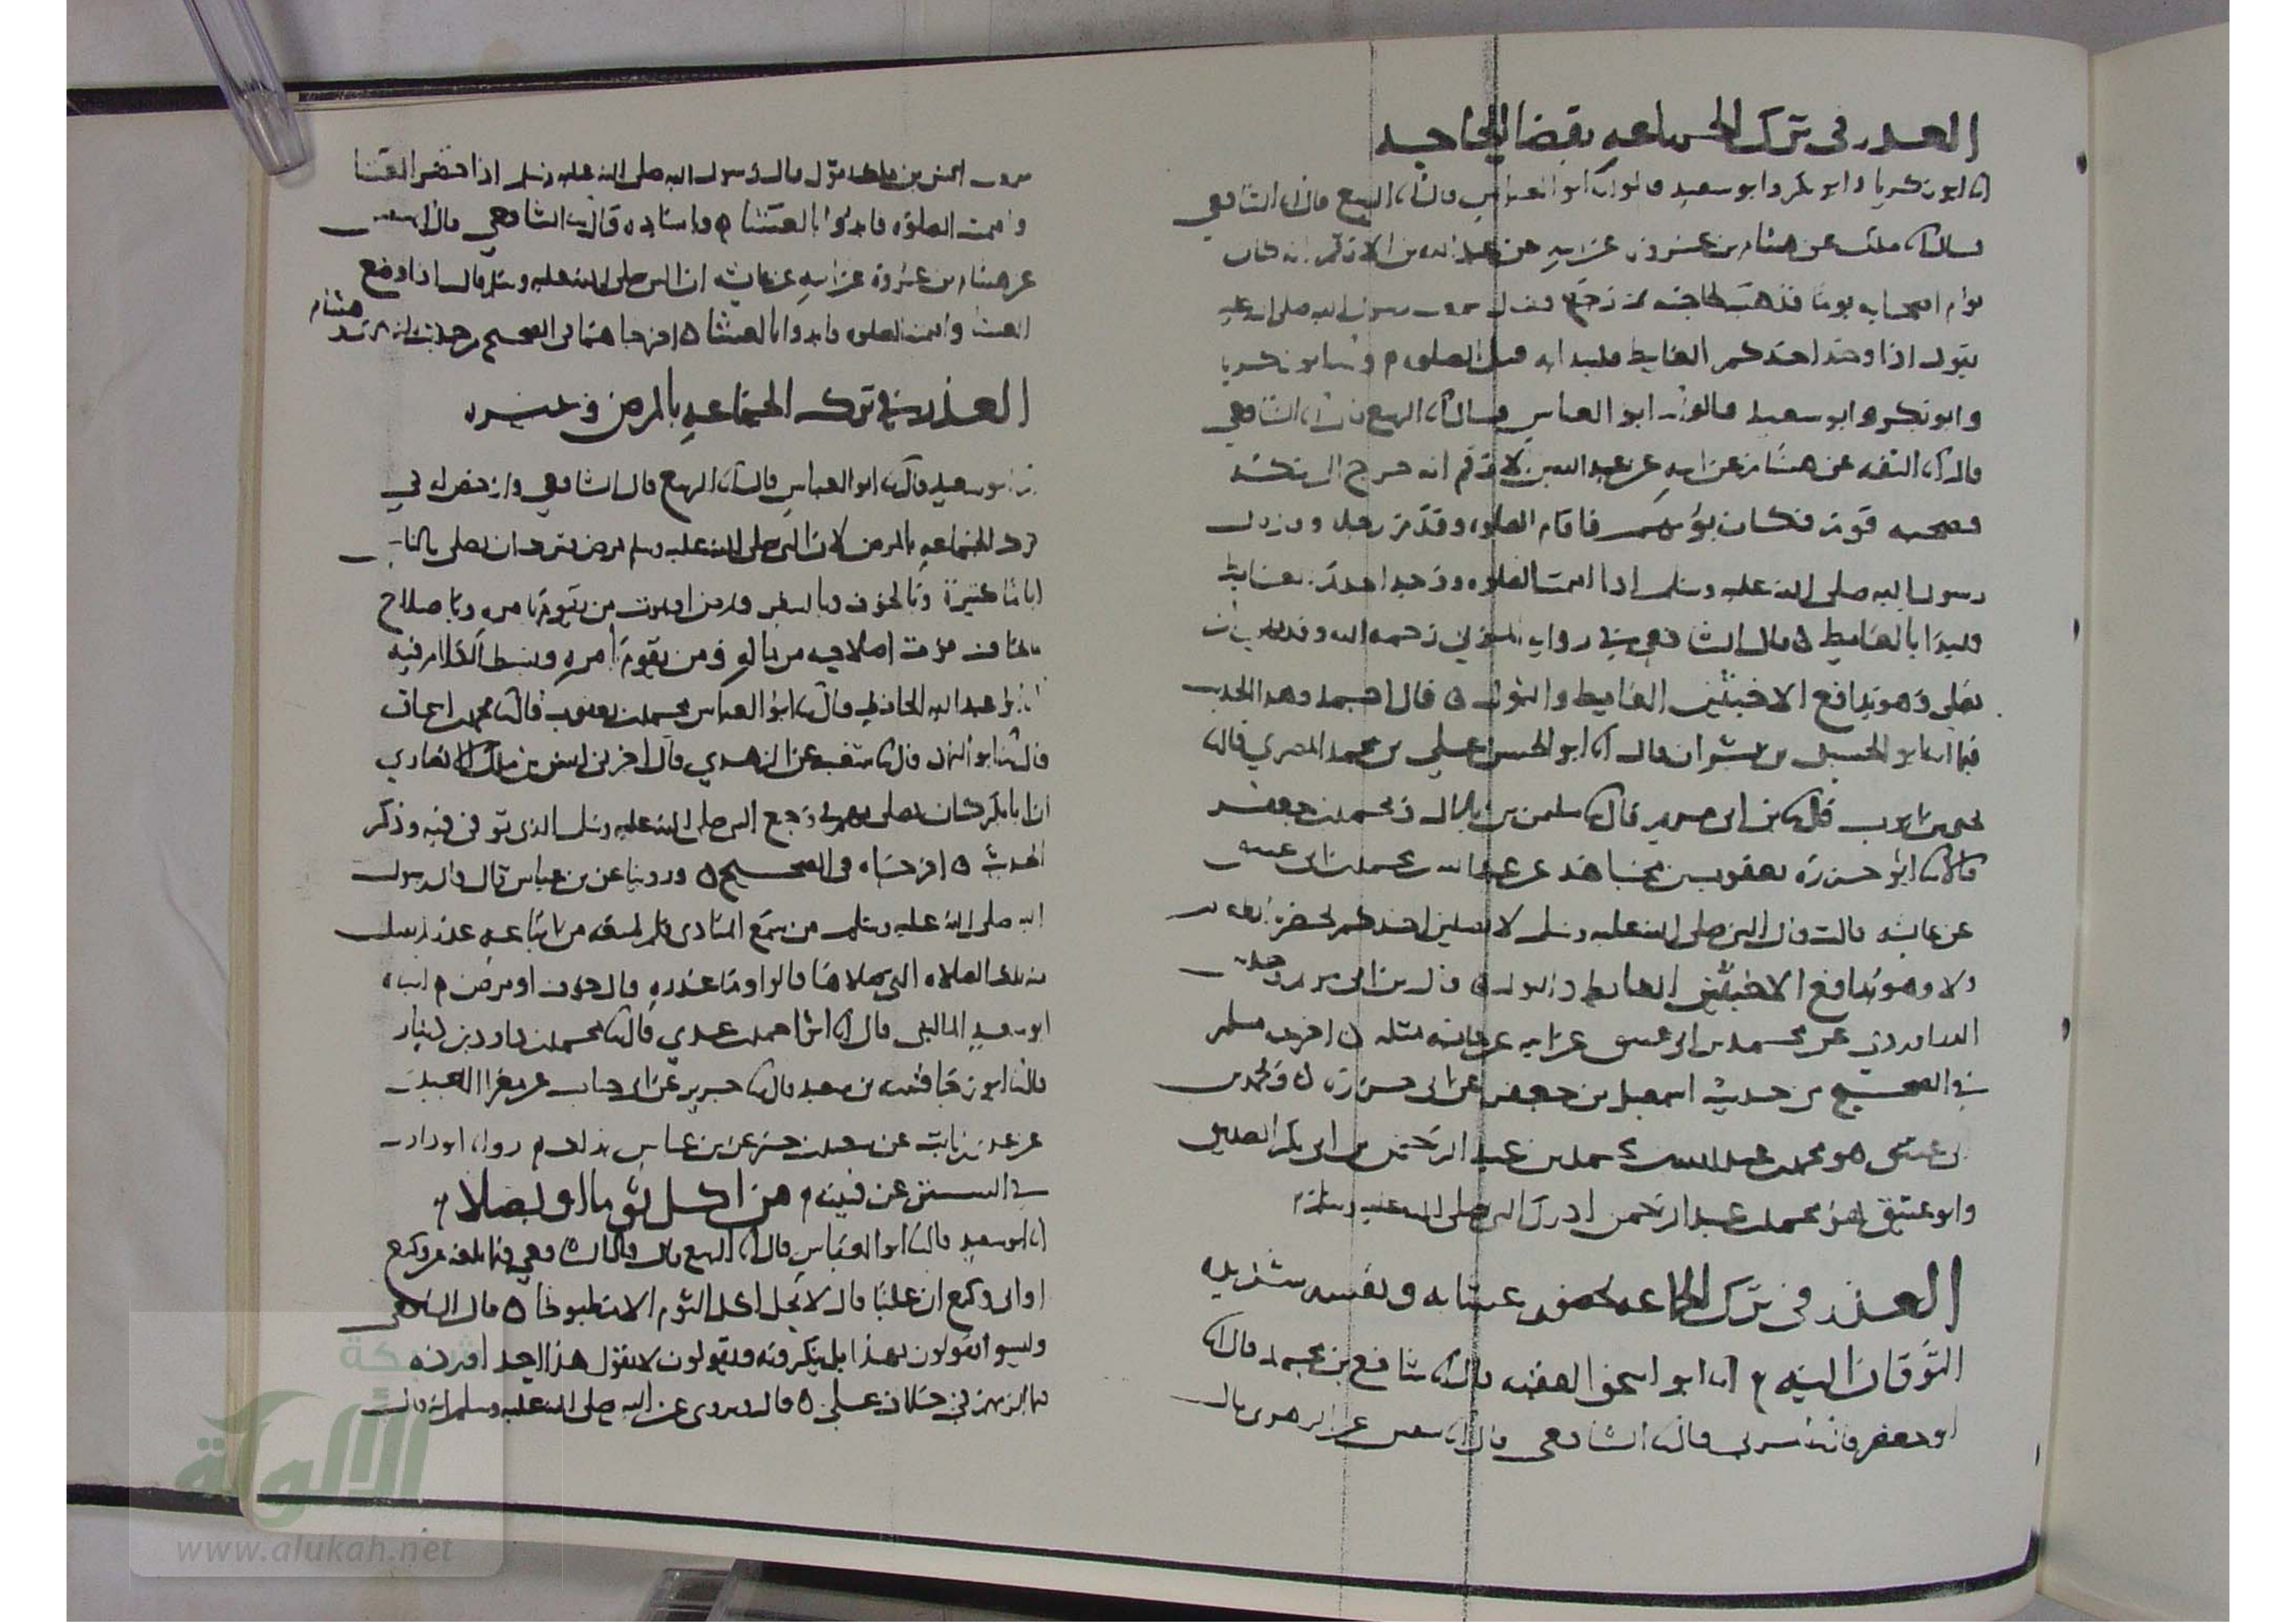 العذر في ترك الجماعه بقضا الحاجه
انا ابو زكريا وابو بكر وابو سعيد قالوا انا ابو العباس قال انا الربيع قال انا الشافعي
قال انا ملك عن هشام بن عروة عن ابيه عن عبد الله بن الارقم انه كان
يؤم اصحابه يوما فذهب لحاجته ثم رجع فقال سمعت رسول الله صلى الله عليه
يقول اذا وجد احدكم الغايط فليبدا به قبل الصلوه وانا ابو زكريا
وابو بكر وابو سعيد قالوا انا ابو العباس قال انا الربيع قال انا الشافعي
قال انا الثقه عن هشام عن ابيه عن عبد الله بن الارقم انه خرج الى مكه
فصحبه قوم فكان يؤمهم فاقام الصلوه وقدم رجل وقال قال
رسول الله صلى الله عليه وسلم اذا اقيمت الصلوه ووجد احدكم الغايط
فليبدا بالغايط ه قال الشافعي في رواية المزني رحمه الله وقد
يصلي وهو يدافع الاخبثين الغايط والبول ه قال احمد وهذا الحديث
فيما انا ابو الحسين بن بشران قال انا ابو الحسن علي بن محمد المصري قال
يحيى بن ايوب قال بن ابي مريم قال سليمن بن بلال ومحمد بن جعفر
قالا ابو حزرة يعقوب بن مجاهد عن عبد الله بن محمد بن ابي عتيق
عن عايشه قالت قال النبي صلى الله عليه وسلم لا يصلين احدكم بحضرة الطعام
ولا وهو يدافع الاخبثين الغايط والبول ه قال بن ابي مريم وحدثني
الدراوردي عن محمد بن ابي عتيق عن ابيه عن عايشه مثله ه اخرجه مسلم
في الصحيح من حديث اسمعيل بن جعفر عن ابي حزرة ه ومحمد بن
ابي عتيق هو محمد بن عبد الله بن محمد بن عبد الرحمن بن ابي بكر الصديق
وابو عتيق هو محمد بن عبد الرحمن ادرك النبي صلى الله عليه وسلم
العذر في ترك الجماعه بحضور عشايه ونفسه شديده
التوقان اليه انا ابو اسحق الفقيه قال انا شافع بن محمد قال انا
ابو جعفر قال المزني قال الشافعي قال انا سفين عن الزهري قال
سمعت انس بن ملك يقول قال رسول الله صلى الله عليه وسلم اذا حضر العشا
واقيمت الصلوه فابدوا بالعشا ه وباسناده قال الشافعي قال انا سفين
عن هشام بن عروة عن ابيه عن عايشه ان النبي صلى الله عليه وسلم قال اذا وضع
العشا واقيمت الصلوه فابدوا بالعشا ه اخرجاهما في الصحيح من حديث هشام
العذر في ترك الجماعه بالمرض وغيره
ابو سعيد قال ابو العباس قال انا الربيع قال الشافعي وارخص له في
ترك الجماعه بالمرض لان النبي صلى الله عليه وسلم مرض فترك ان يصلي بالناس
اياما كثيرة وبالخوف وبالسفر وبمرض او بموت من يقوم بامره وباصلاح
ما يخاف فوت اصلاحه من ماله ومن يقوم بامره وبسط الكلام فيه
ابو عبد الله الحافظ قال ابو العباس محمد بن يعقوب قال محمد بن اسحاق
قال ابو اليمان قال شعيب عن الزهري قال اخبرني انس بن ملك الانصاري
ان ابا بكر كان يصلي بهم في وجع النبي صلى الله عليه وسلم الذي توفي فيه وذكر
الحديث ه اخرجاه في الصحيح ه وروينا عن بن عباس قال قال رسول
الله صلى الله عليه وسلم من سمع المنادي فلم يمنعه من اتباعه عذر لم يقبل
منه تلك الصلاه التي صلاها قالوا وما عذره قال خوف او مرض انباه
ابو سعيد الماليني قال ابو احمد بن عدي قال محمد بن داود بن دينار
قال ابو رجا قتيبه بن سعيد قال جرير عن ابي جناب عن مغرا العبدي
عن عدي بن ثابت عن سعيد بن جبير عن بن عباس بذلك رواه ابو داود
في السنن عن قتيبه من اكل ثوما او بصلا
انا ابو سعيد قال ابو العباس قال انا الربيع قال قال الشافعي فيما بلغه عن وكيع
او ابي وكيع ان عليا قال لا يحل اكل الثوم الا مطبوخا ه قال الشافعي
وليسوا يقولون بهذا بل ينكرونه ويقولون لا يقول هذا احد اورده
فيما الزمهم في خلاف علي ه قال ويروى عن النبي صلى الله عليه وسلم انه قال
شبكة
الألوكة
www.alukah.net